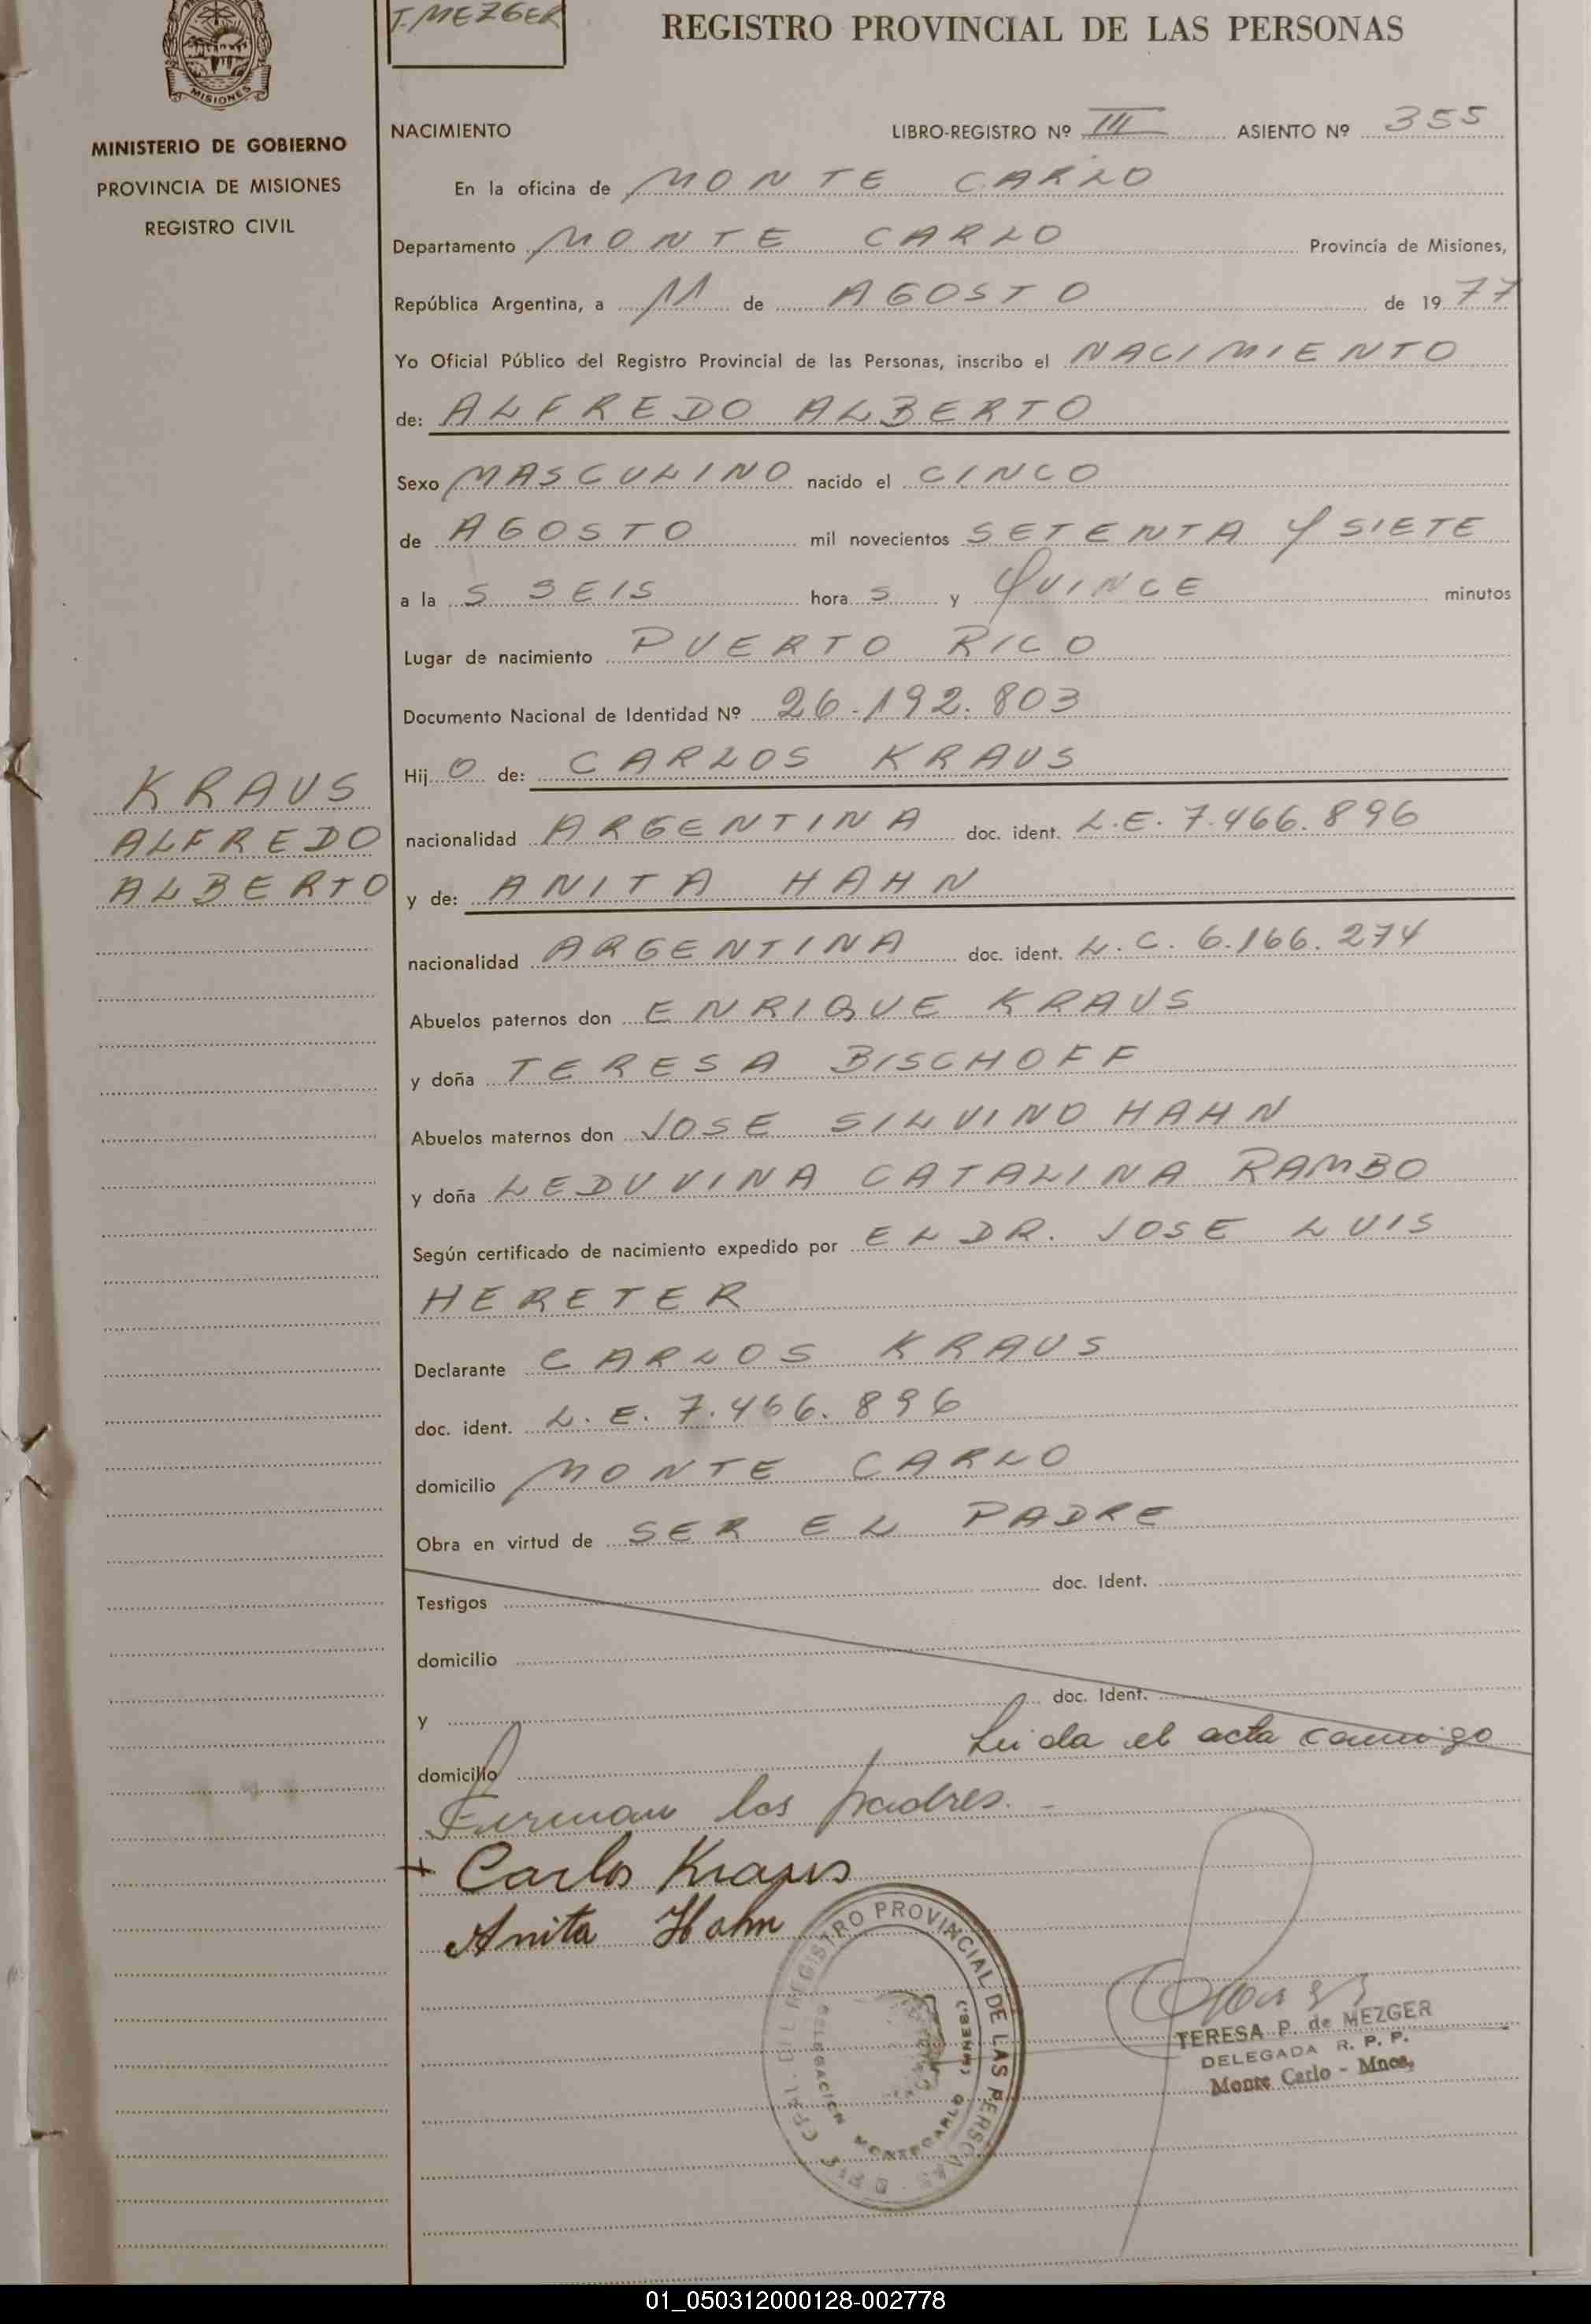 T. MEZGER
REGISTRO PROVINCIAL DE LAS PERSONAS
MISIONES
MINISTERIO DE GOBIERNO
PROVINCIA DE MISIONES
REGISTRO CIVIL
NACIMIENTO LIBRO-REGISTRO Nº III ASIENTO Nº 355
En la oficina de MONTE CARLO
Departamento MONTE CARLO Provincia de Misiones,
República Argentina, a 11 de AGOSTO de 1977
Yo Oficial Público del Registro Provincial de las Personas, inscribo el NACIMIENTO
de: ALFREDO ALBERTO
Sexo MASCULINO nacido el CINCO
de AGOSTO mil novecientos SETENTA Y SIETE
a la S SEIS hora S y QUINCE minutos
Lugar de nacimiento PUERTO RICO
Documento Nacional de Identidad Nº 26.192.803
Hij O de: CARLOS KRAUS
KRAUS
ALFREDO
ALBERTO
nacionalidad ARGENTINA doc. ident. L.E. 7.466.896
y de: ANITA HAHN
nacionalidad ARGENTINA doc. ident. L.C. 6.166.274
Abuelos paternos don ENRIQUE KRAUS
y doña TERESA BISCHOFF
Abuelos maternos don JOSE SILVINO HAHN
y doña LEDUVINA CATALINA RAMBO
Según certificado de nacimiento expedido por EL DR. JOSE LUIS
HERETER
Declarante CARLOS KRAUS
doc. ident. L.E. 7.466.896
domicilio MONTE CARLO
Obra en virtud de SER EL PADRE
Testigos doc. Ident.
domicilio
y doc. Ident.
domicilio Leida el acta conmigo
Firman los padres.-
+ Carlos Kraus
Anita Hahn
REGISTRO PROVINCIAL DE LAS PERSONAS
DELEGACION MONTECARLO (MNES.)
TERESA P. de MEZGER
DELEGADA R. P. P.
Monte Carlo - Mnes.
01_050312000128-002778